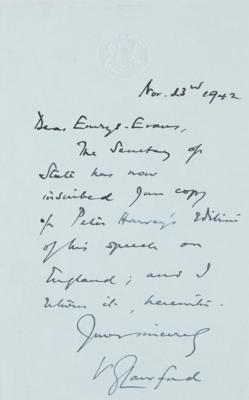 Nov. 23rd 1942
Dear Emrys-Evans,
The Secretary of
State has now
inscribed your copy
of Peter Harvey's Edition
of his speech on
England; and I
return it, herewith.
Yours sincerely
V G Lawford